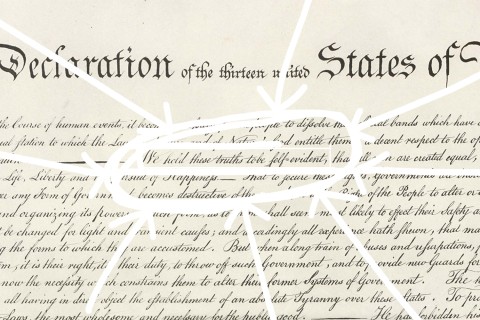 Declaration of the thirteen united States of
the Course of human events, it people to dissolve the bands which have
station to which the of Nature's God entitle them decent respect to the
We hold these truths to be self-evident, that all men are created equal,
Life, Liberty and pursuit of Happiness — That to secure these rights, Governments are
any Form of Government becomes destructive of the Right of the People to alter or
and organizing its powers form, as shall seem most likely to effect their Safety
be changed for light and transient causes; and accordingly all experience hath shewn, that
the forms to which they are accustomed. But when a long train of abuses and usurpations,
it is their right, it is their duty, to throw off such Government, and to provide new Guards for
now the necessity which constrains them to alter their former Systems of Government. The
all having in direct object the establishment of an absolute Tyranny over these States. To
Laws, the most wholesome and necessary for the public good. He has forbidden his